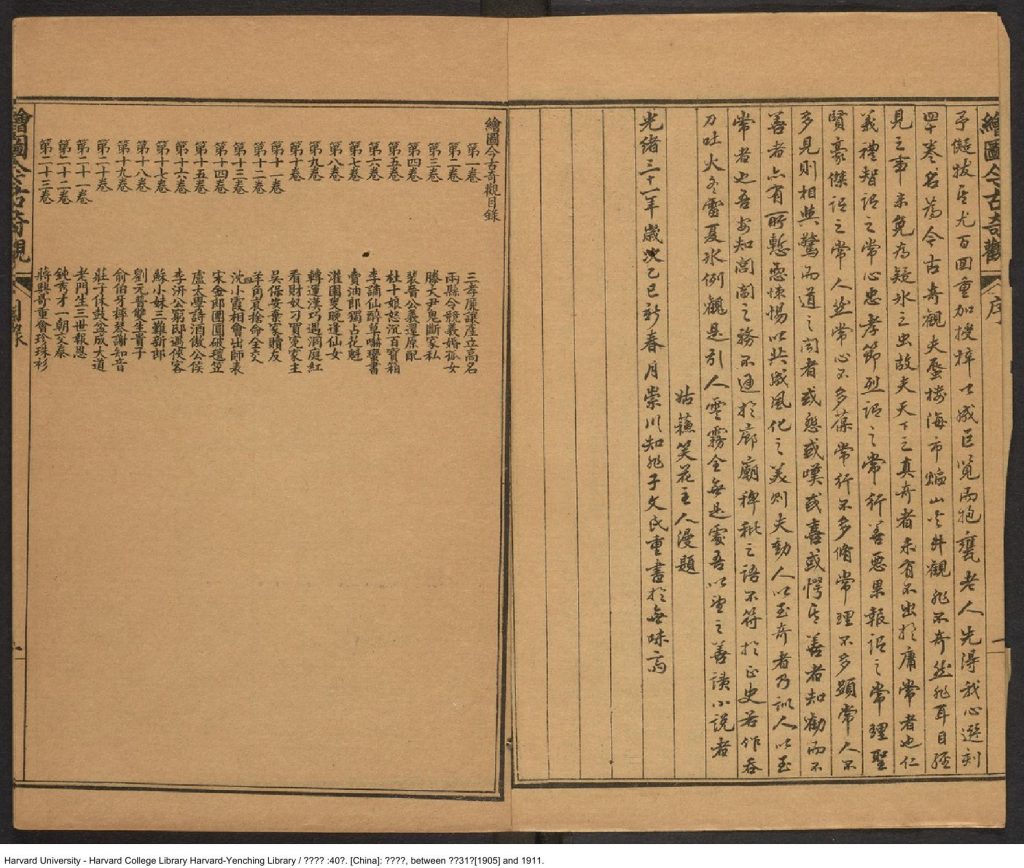 繪圖今古奇觀
序
予擬拔其尤百回重加授梓以成巨覽而抱甕老人先得我心選刻
四十卷名為今古奇觀夫蜃樓海市焰山火井觀非不奇然非耳目經
見之事未免為疑冰之虫故夫天下之真奇者未有不出於庸常者也仁
義禮智謂之常心忠孝節烈謂之常行善惡果報謂之常理聖
賢豪傑謂之常人然常心不多葆常行不多脩常理不多顯常人不
多見則相與驚而道之聞者或悲或嘆或喜或愕其善者知勸而不
善者亦有所慙恧悚惕以共成風化之美則夫動人以至奇者乃訓人以至
常者也吾安知閭閻之務不通於廊廟稗秕之語不符於正史若作吞
刀吐火冬雷夏冰例觀是引人雲霧全無是處吾以望之善讀小說者
姑蘇笑花主人漫題
光緒三十一年歲次乙巳新春月崇川知非子文氏重書於無味齋
繪圖今古奇觀目錄
第一卷 三孝廉讓產立高名
第二卷 兩縣令競義婚孤女
第三卷 滕大尹鬼斷家私
第四卷 裴晉公義還原配
第五卷 杜十娘怒沉百寶箱
第六卷 李謫仙醉草嚇蠻書
第七卷 賣油郎獨占花魁
第八卷 灌園叟晚逢仙女
第九卷 轉運漢巧遇洞庭紅
第十卷 看財奴刁買冤家主
第十一卷 吳保安棄家贖友
第十二卷 羊角哀捨命全交
第十三卷 沈小霞相會出師表
第十四卷 宋金郎團圓破氊笠
第十六卷 盧太學詩酒傲公侯
第十七卷 李汧公窮邸遇俠客
第十八卷 蘇小妹三難新郎
第十九卷 劉元普雙生貴子
第二十卷 俞伯牙摔琴謝知音
第二十一卷 莊子休鼓盆成大道
第二十二卷 老門生三世報恩
第二十三卷 鈍秀才一朝交泰
蔣興哥重會珍珠衫
繪圖今古奇觀
目錄
一
Harvard University - Harvard College Library Harvard-Yenching Library / ???? :40?. [China]: ????, between ??31?[1905] and 1911.